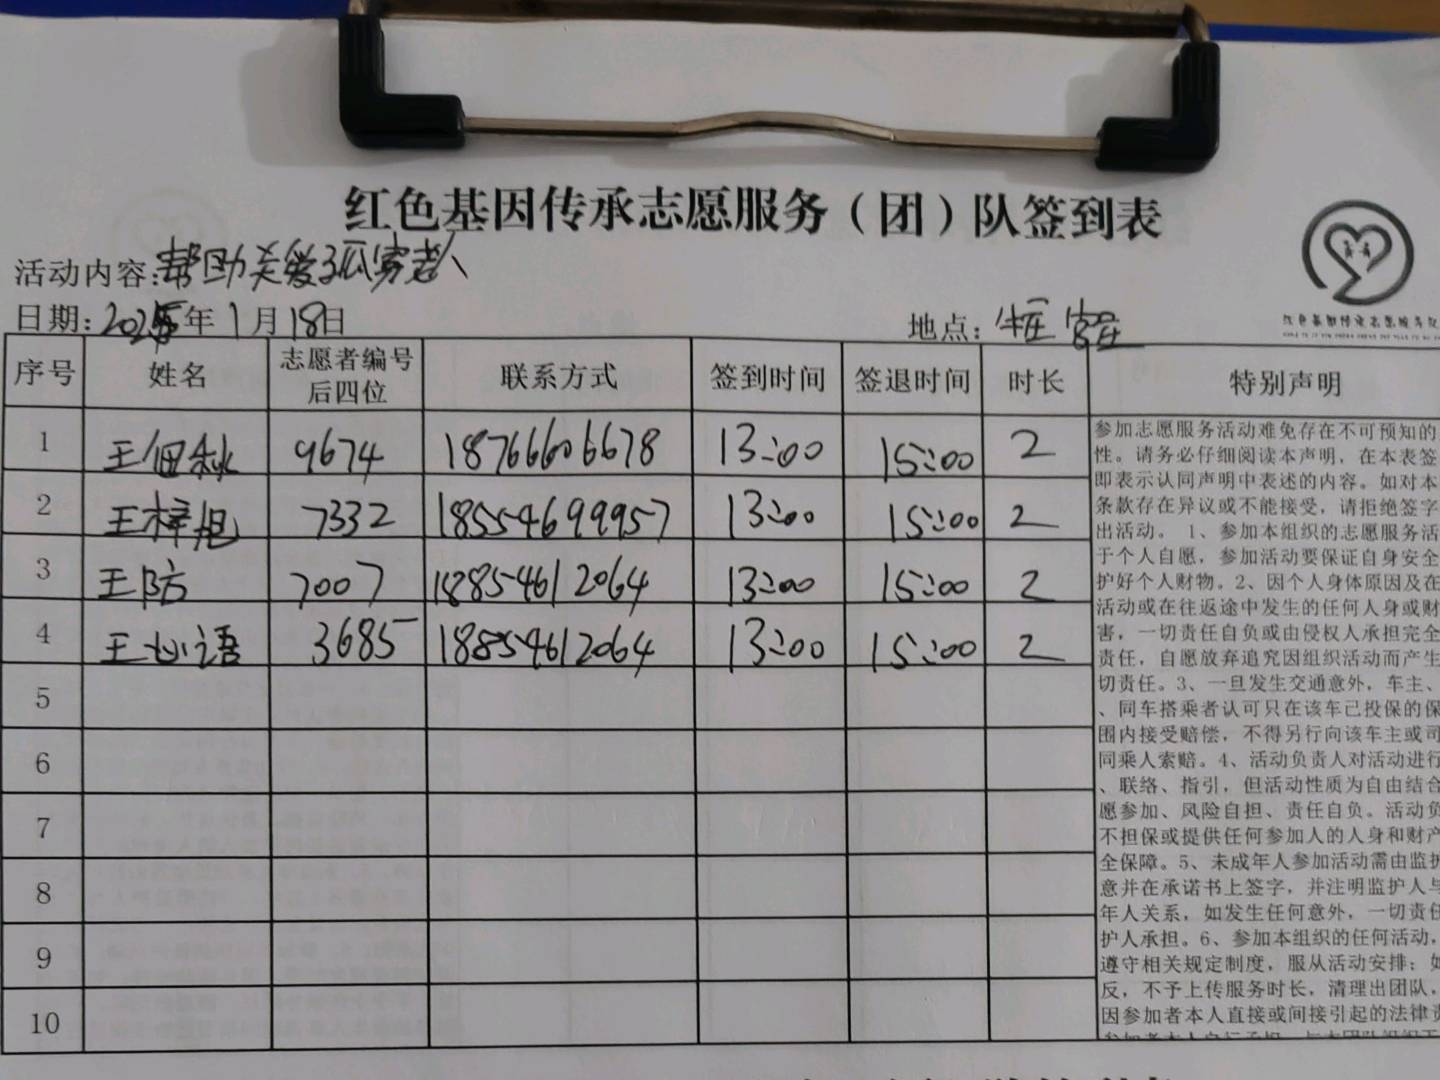 红色基因传承志愿服务（团）队签到表
活动内容：帮助关爱孤寡老人
日期：2025年1月18日 地点：
序号 姓名 志愿者编号后四位 联系方式 签到时间 签退时间 时长 特别声明
1 王佃秋 9674 18766606678 13:00 15:00 2
2 王梓旭 7332 18554699957 13:00 15:00 2
3 王防 7007 18854612064 13:00 15:00 2
4 王心语 3685 18854612064 13:00 15:00 2
5
6
7
8
9
10
参加志愿服务活动难免存在不可预知的
性。请务必仔细阅读本声明，在本表签
即表示认同声明中表述的内容。如对本
条款存在异议或不能接受，请拒绝签字
出活动。 1、参加本组织的志愿服务活
于个人自愿，参加活动要保证自身安全
护好个人财物。2、因个人身体原因及在
活动或在往返途中发生的任何人身或财
害，一切责任自负或由侵权人承担完全
责任，自愿放弃追究因组织活动而产生
切责任。3、一旦发生交通意外，车主、
、同车搭乘者认可只在该车已投保的保
围内接受赔偿，不得另行向该车主或司
同乘人索赔。4、活动负责人对活动进行
、联络、指引，但活动性质为自由结合
愿参加、风险自担、责任自负。活动负
不担保或提供任何参加人的人身和财产
全保障。5、未成年人参加活动需由监护
意并在承诺书上签字，并注明监护人与
年人关系，如发生任何意外，一切责任
护人承担。6、参加本组织的任何活动，
遵守相关规定制度，服从活动安排；如
反，不予上传服务时长，清理出团队，
因参加者本人直接或间接引起的法律责